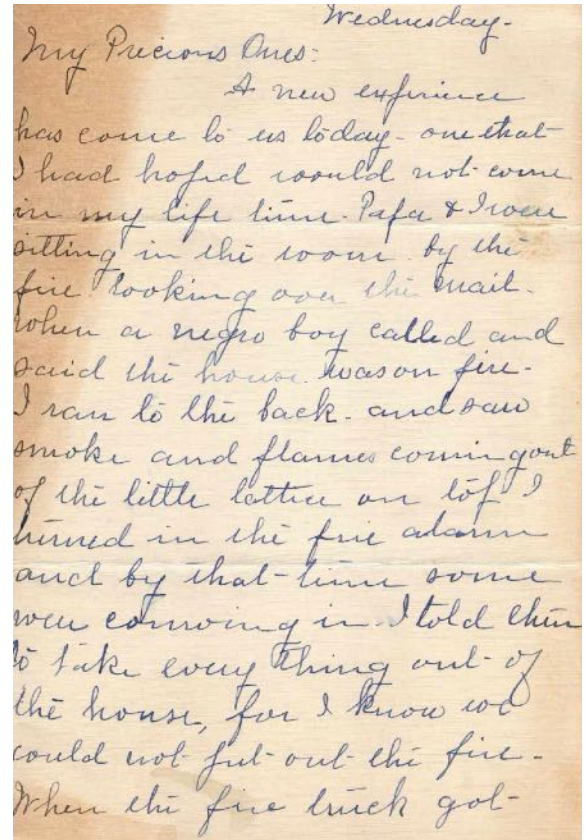 Wednesday-
My Precious Ones:
A new experience
has come to us today- one that
I had hoped would not come
in my life time. Papa & I were
sitting in the room by the
fire looking over the mail-
when a negro boy called and
said the house was on fire-
I ran to the back- and saw
smoke and flames coming out
of the little lattice on top I
turned in the fire alarm
and by that time some
were coming in- I told them
to take every thing out of
the house, for I know we
could not put out the fire-
When the fire truck got-